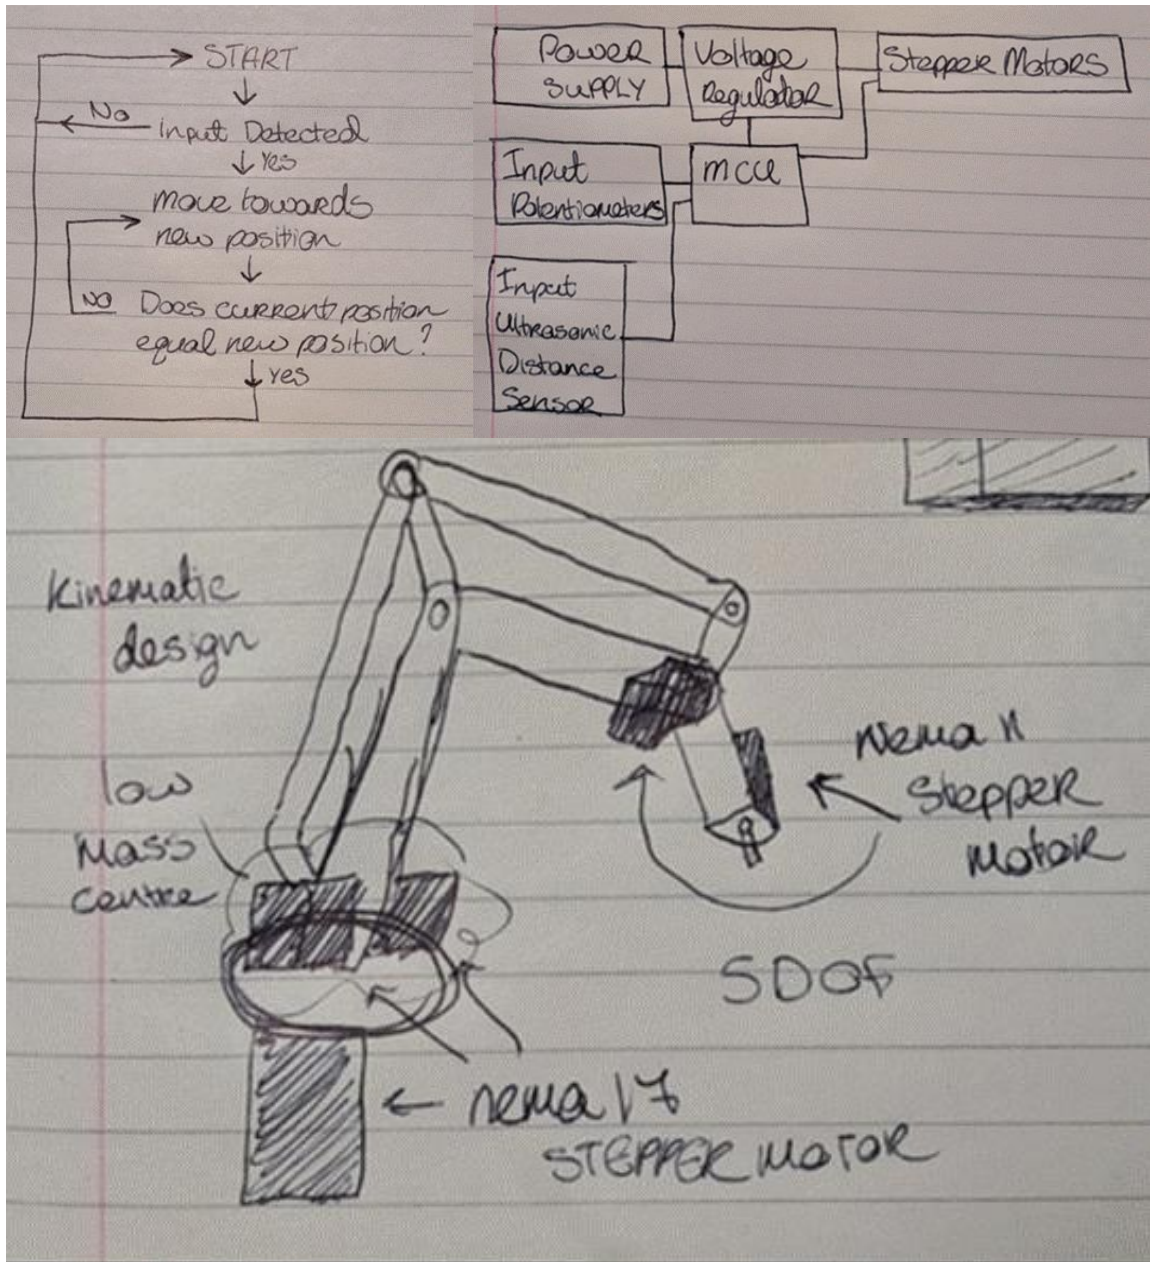 START
No
input Detected
Yes
move towards
new position
No
Does current position
equal new position?
Yes
Power
SUPPLY
Voltage
Regulator
Stepper Motors
Input
Potentiometers
MCU
Input
Ultrasonic
Distance
Sensor
Kinematic
design
low
mass
centre
Nema 11
Stepper
Motor
5DOF
nema 17
STEPPER MOTOR